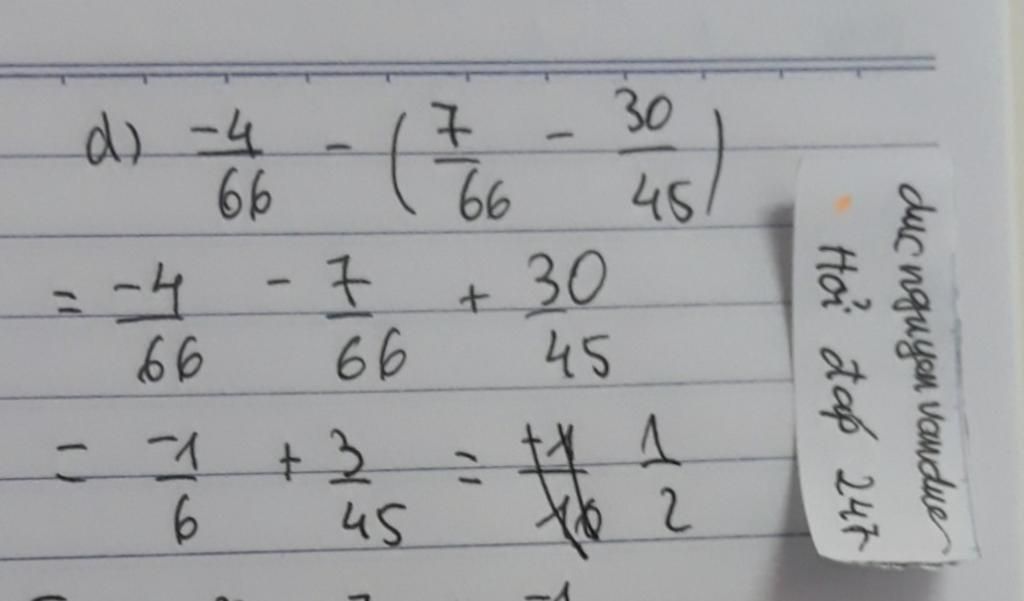 d) -4/66 - (7/66 - 30/45)
= -4/66 - 7/66 + 30/45
= -1/6 + 3/45 = 1/2
ducnguyenvanduc
Hỏi đáp 247